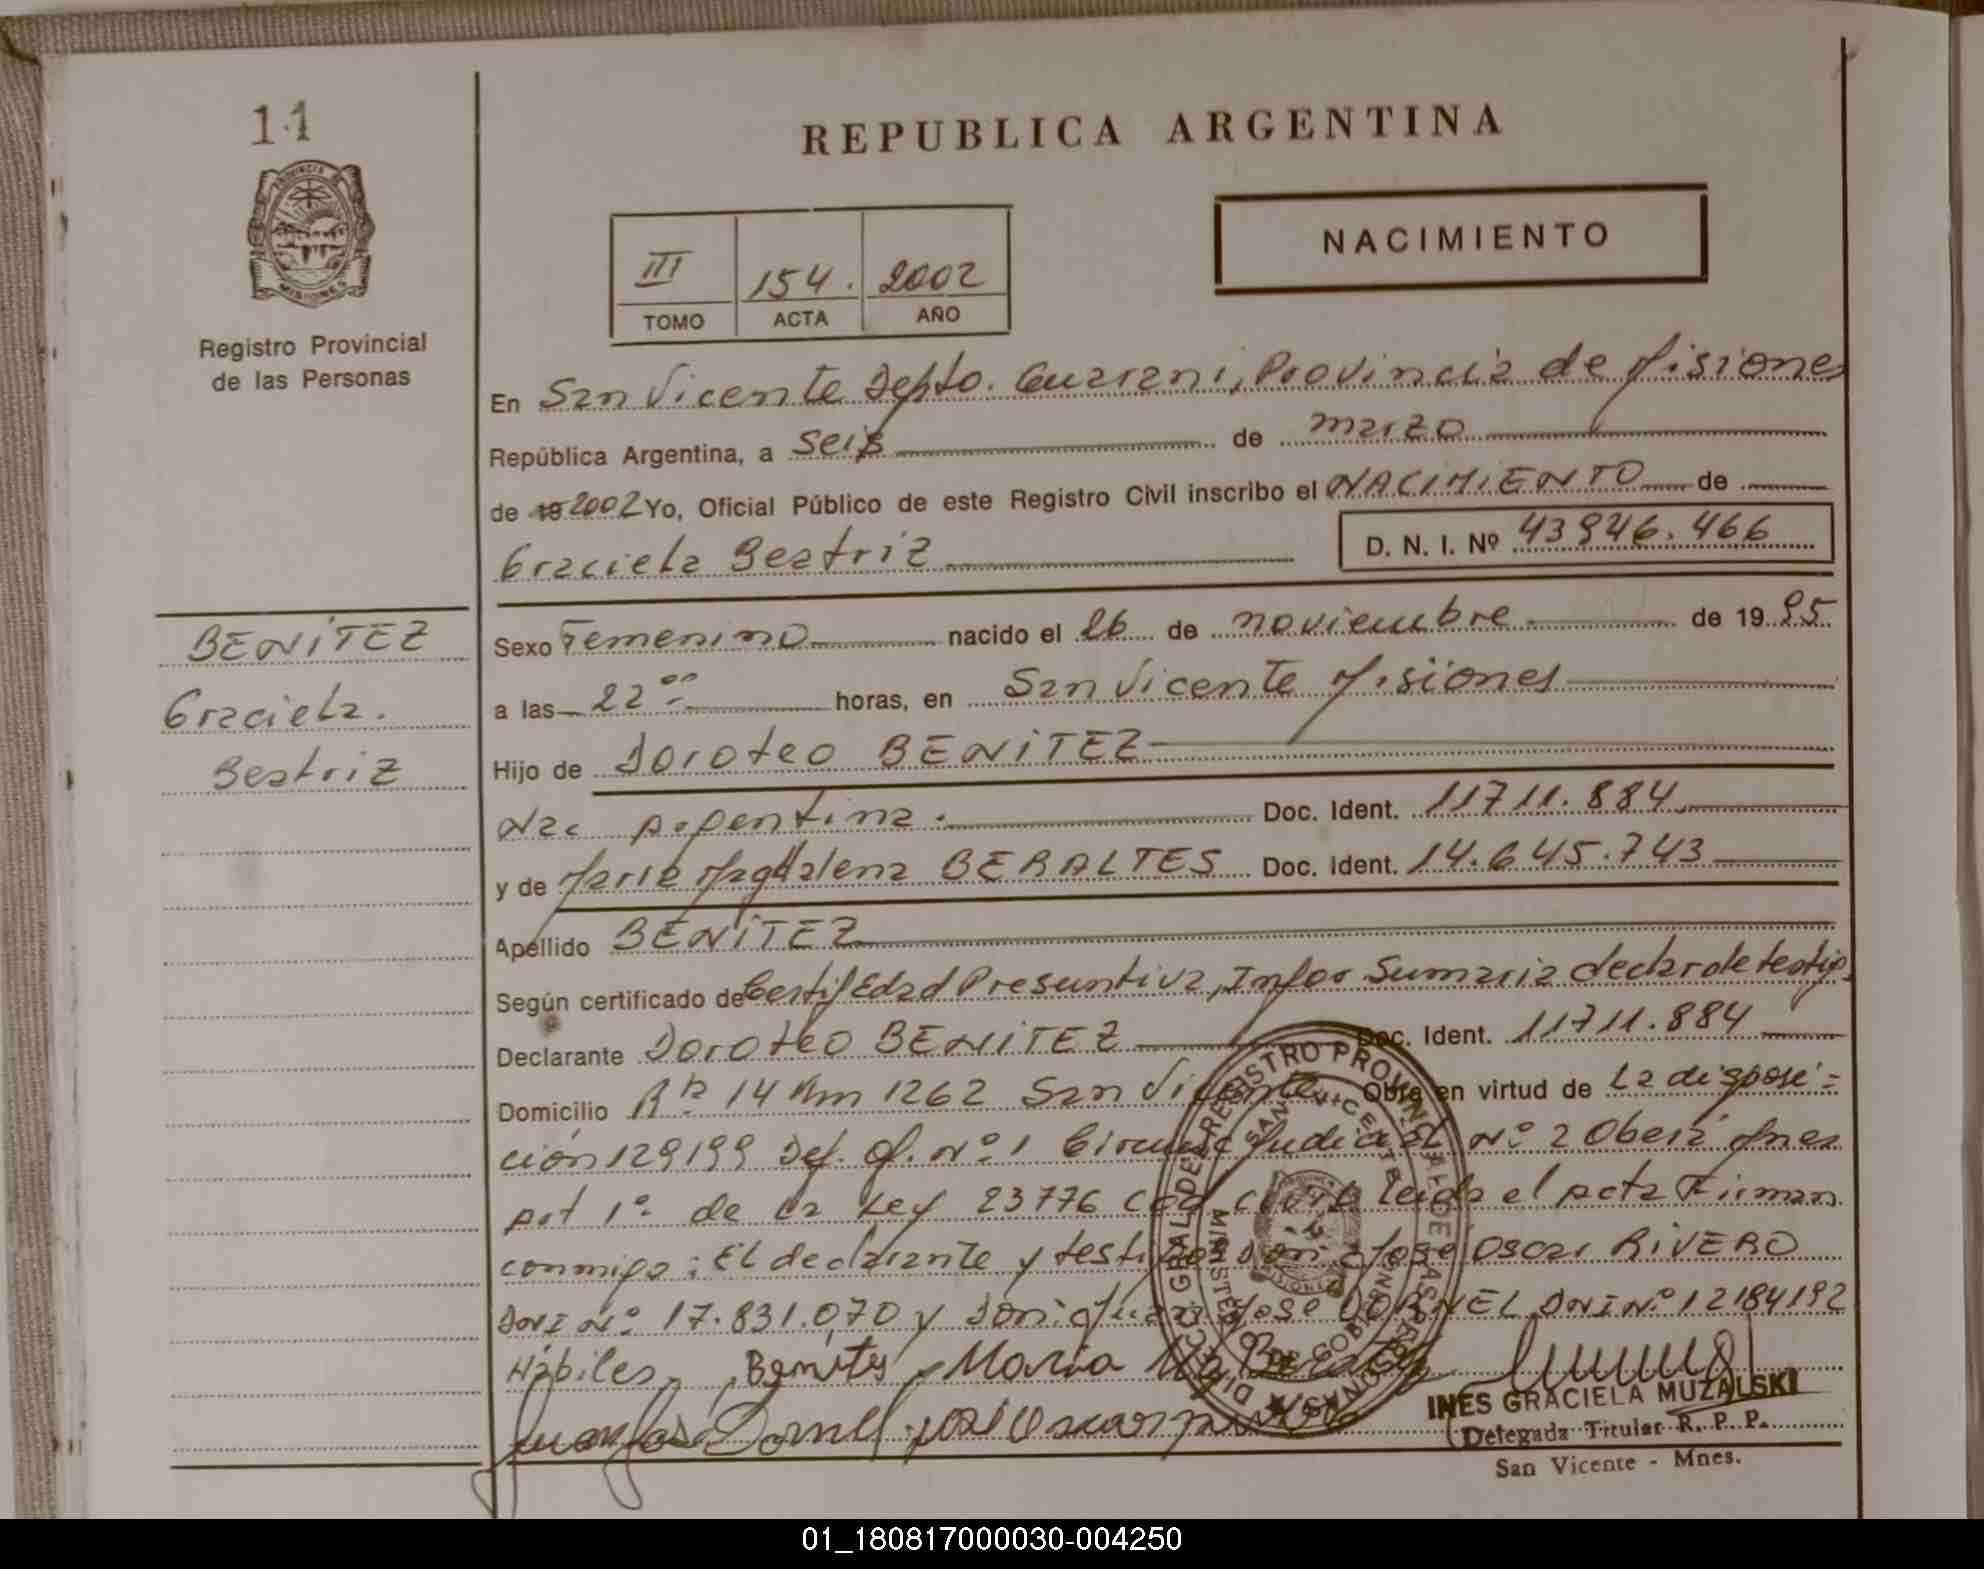 11
REPUBLICA ARGENTINA
NACIMIENTO
III 154. 2002
TOMO ACTA AÑO
PROVINCIA DE
MISIONES
Registro Provincial
de las Personas
En San Vicente Depto. Guarani, Provincia de Misiones
República Argentina, a seis de marzo
de 19 2002 Yo, Oficial Público de este Registro Civil inscribo el NACIMIENTO de
Graciela Beatriz D. N. I. Nº 43946.466
BENITEZ
Graciela.
Beatriz
Sexo Femenino nacido el 26 de noviembre de 1995.
a las 22 00 horas, en San Vicente Misiones
Hijo de Doroteo BENITEZ
Nac Argentina. Doc. Ident. 11711.884
y de Maria Magdalena BERALTES Doc. Ident. 14.645.743
Apellido BENITEZ
Según certificado de Certif Edad Presuntiva, Infor Sumaria declar de testigos
Declarante Doroteo BENITEZ Doc. Ident. 11711.884
Domicilio Rta 14 Km 1262 San Vicente Obra en virtud de La disposi=
ción 129199 Def. Of. Nº 1 Circunsc Judicial Nº 2 Obera Mnes
Art 1º de la Ley 23776 leida el acta Firman
conmigo: El declarante y testigos Don Jose Oscar RIVERO
DNI Nº 17.831.070 y Don Juan Jose DORNEL DNI Nº 12184192
Hábiles. Benites Maria
Juan José Dornel José Oscar
DIRECC. GRAL. DE REGISTRO PROVINCIAL DE LAS PERSONAS
SAN VICENTE
MINISTERIO DE GOBIERNO
MISIONES
INES GRACIELA MUZALSKI
Delegada Titular R. P. P.
San Vicente - Mnes.
01_180817000030-004250